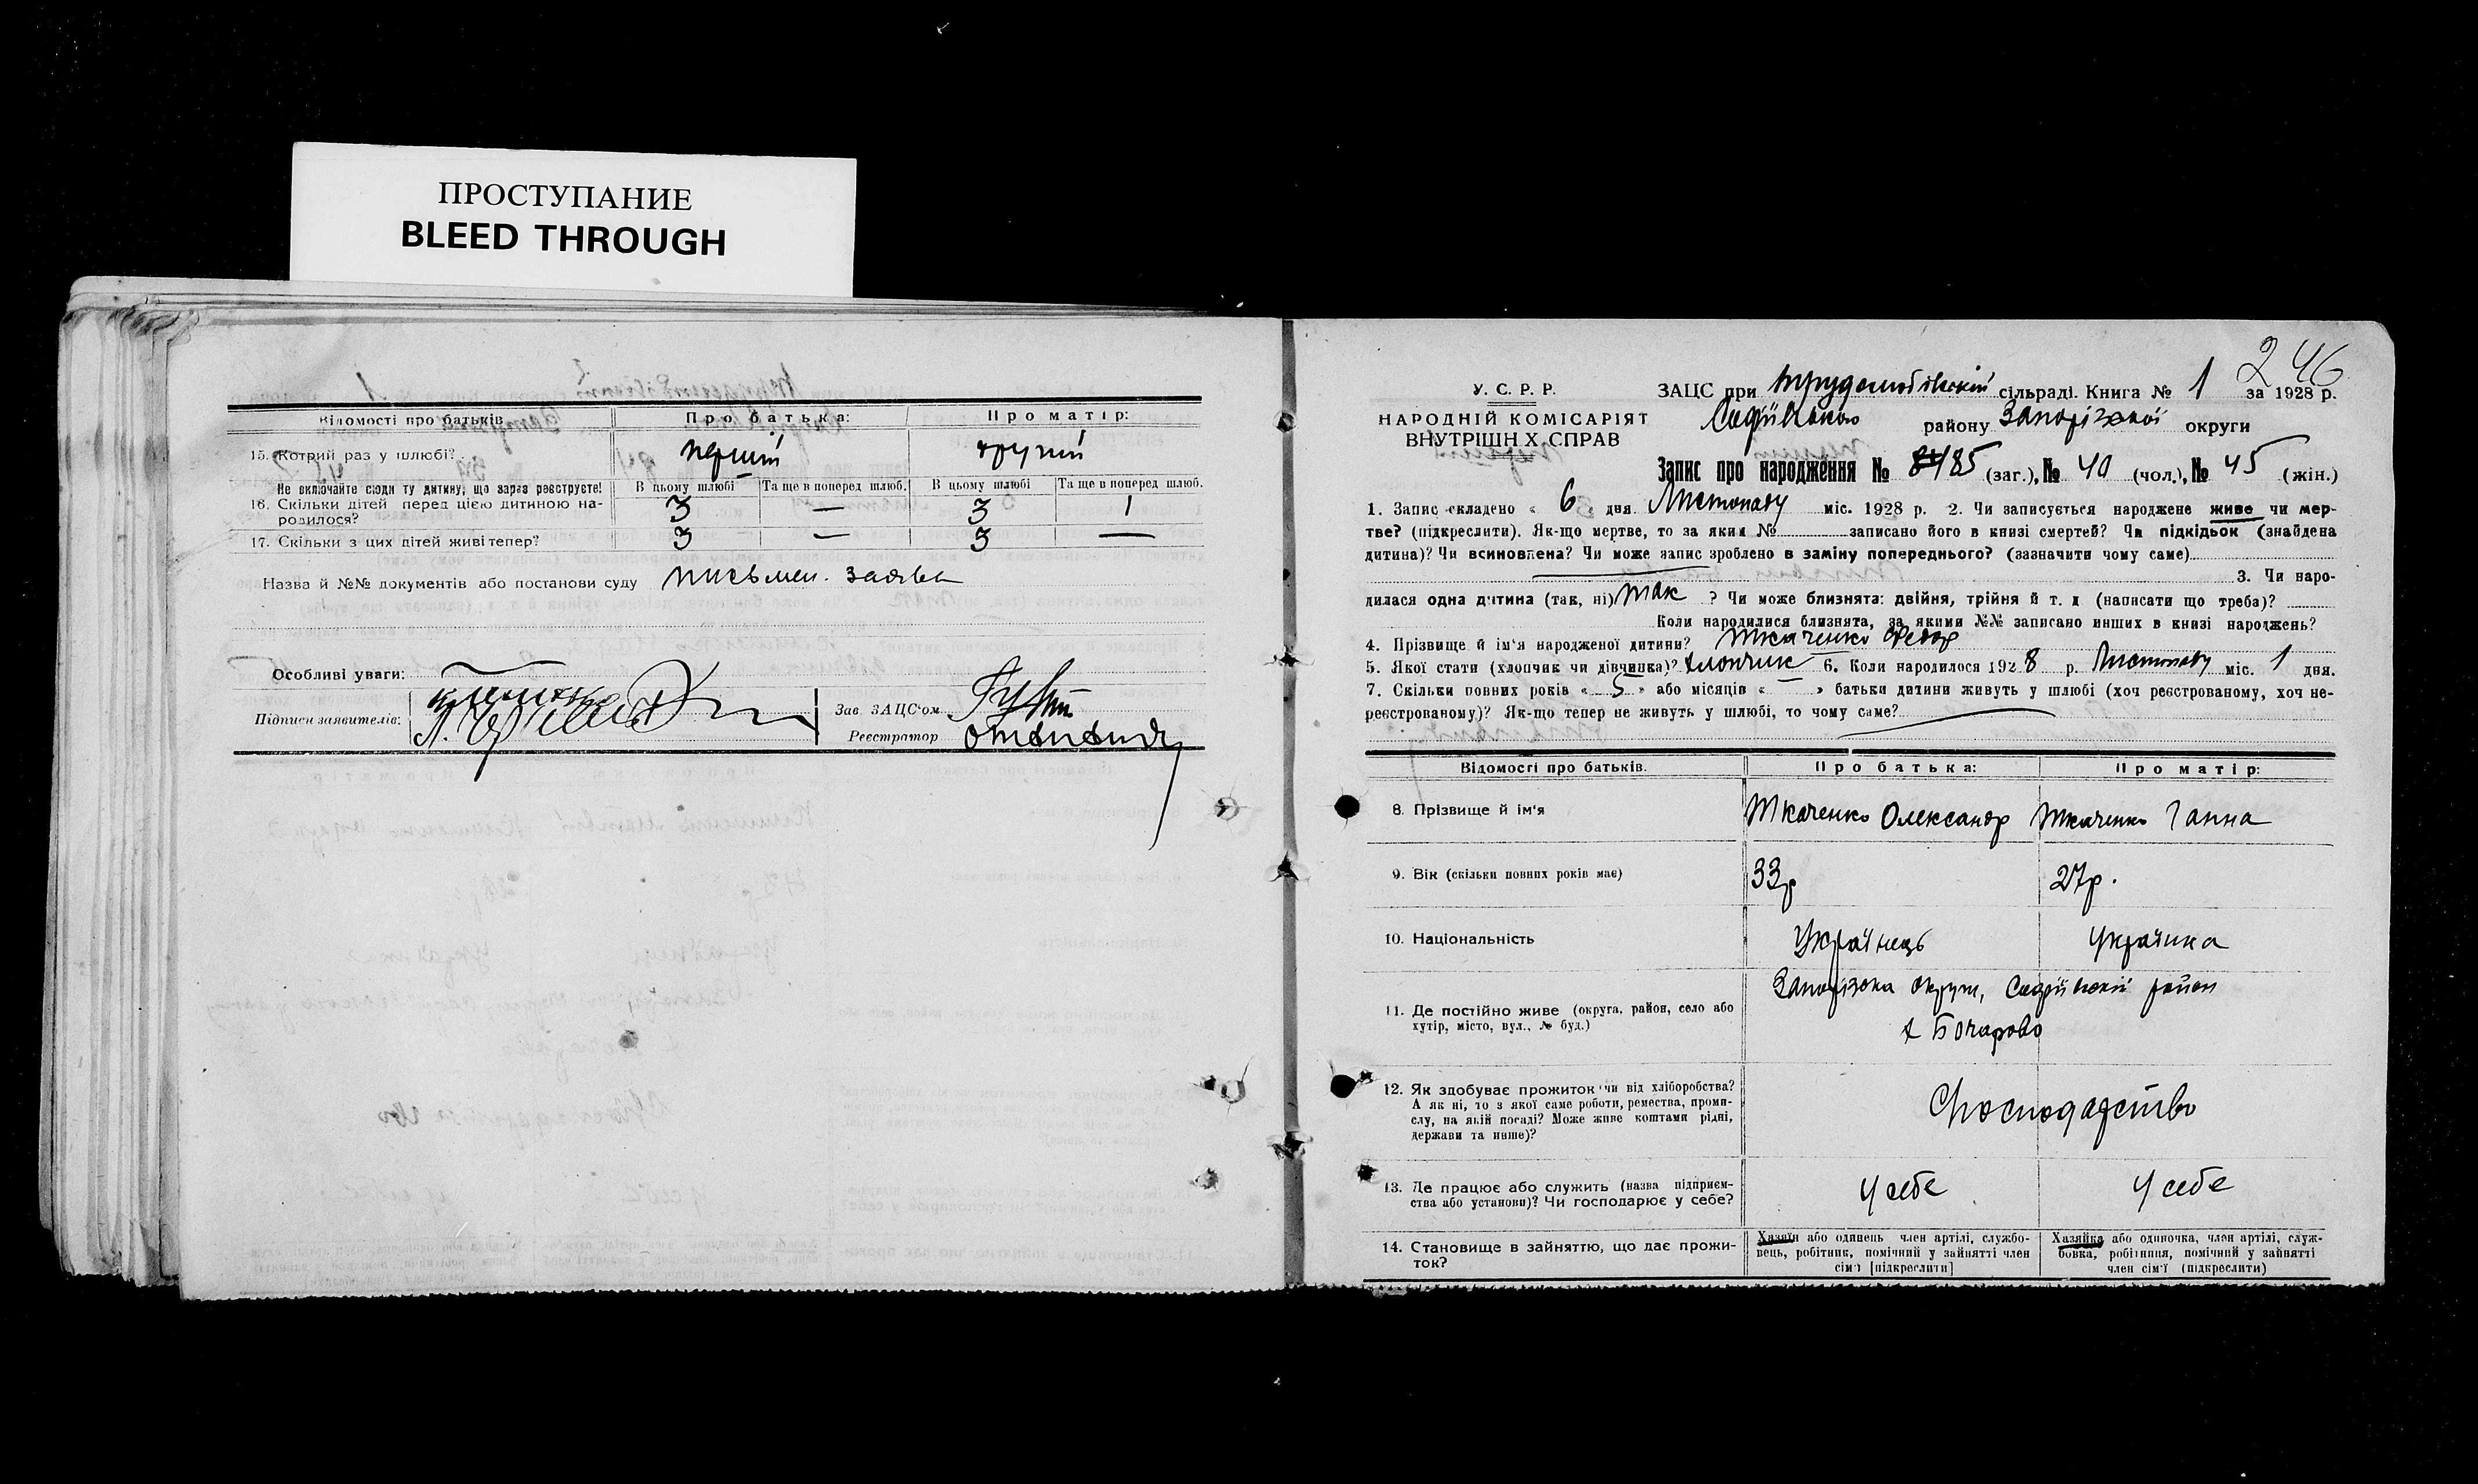 ПРОСТУПАНИЕ
BLEED THROUGH
Відомості про батьків
Про батька:
Про матір:
15. Котрий раз у шлюбі?
перший
другий
Не включайте сюди ту дитину, що зараз реєструєте!
В цьому шлюбі
Та ще в поперед шлюб.
В цьому шлюбі
Та ще в поперед шлюб.
16. Скільки дітей перед цією дитиною на-
родилося?
3 — 3 1
17. Скільки з цих дітей живі тепер?
3 — 3 —
Назва й №№ документів або постанови суду письмен. заява
Особливі уваги:
Підписи заявителів:
Зав. ЗАЦС'ом
Реєстратор
246
У. С. Р. Р.
НАРОДНІЙ КОМІСАРІЯТ
ВНУТРІШН Х СПРАВ
ЗАЦС при сільраді. Книга № 1 за 1928 р.
району Запорізької округи
Запис про народження № 85 (заг.), № 40 (чол.), № 45 (жін.)
1. Запис складено « 6 » дня Листопаду міс. 1928 р. 2. Чи записується народжене живе чи мер-
тве? (підкреслити). Як-що мертве, то за яким № записано його в книзі смертей? Чи підкідьок (знайдена
дитина)? Чи всиновлена? Чи може запис зроблено в заміну попереднього? (зазначити чому саме)
3. Чи наро-
дилася одна дитина (так, ні) так ? Чи може близнята: двійня, трійня й т. д (написати що треба)?
Коли народилися близнята, за якими №№ записано инших в книзі народжень?
4. Прізвище й ім'я народженої дитини? Ткаченко Федор
5. Якої стати (хлопчик чи дівчинка)? хлопчик 6. Коли народилося 1928 р. Листопаду міс. 1 дня.
7. Скільки повних років « 5 » або місяців « — » батьки дитини живуть у шлюбі (хоч реєстрованому, хоч не-
реєстрованому)? Як-що тепер не живуть у шлюбі, то чому саме?
Відомості про батьків.
Про батька:
Про матір:
8. Прізвище й ім'я
Ткаченко Олександр
Ткаченко Ганна
9. Вік (скільки повних років має)
33р
27р.
10. Національність
Українець
Українка
11. Де постійно живе (округа, район, село або
хутір, місто, вул., № буд.)
Запорізька округи, район
х Бочарово
12. Як здобуває прожиток чи від хліборобства?
А як ні, то з якої саме роботи, ремества, проми-
слу, на якій посаді? Може живе коштами рідні,
держави та инше)?
13. Де працює або служить (назва підприєм-
ства або установи)? Чи господарює у себе?
у себе
у себе
14. Становище в зайняттю, що дає прожи-
ток?
Хазяїн або одинець член артілі, службо-
вець, робітник, помічний у зайнятті член
сім'ї [підкреслити]
Хазяйка або одиночка, член артілі, служ-
бовка, робітниця, помічний у зайнятті
член сім'ї (підкреслити)